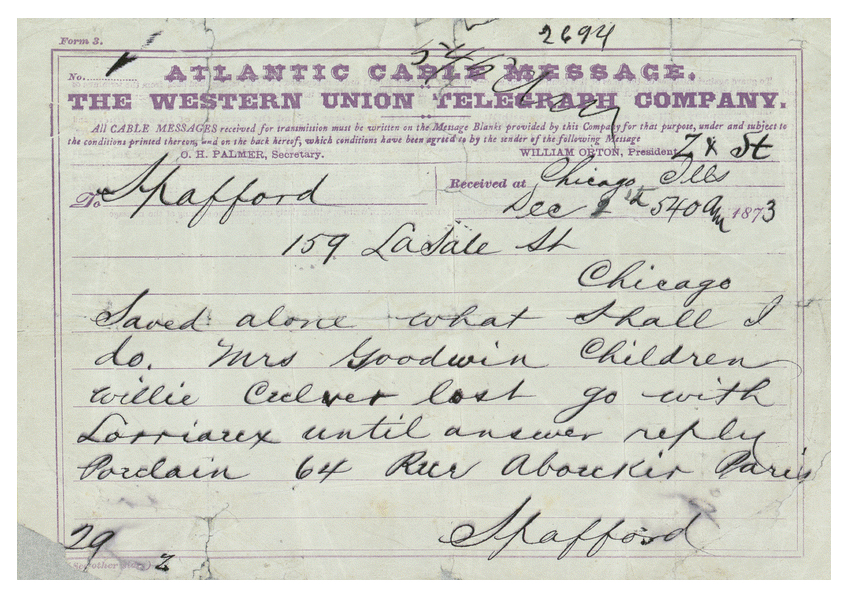 2694
Form 3.
No.
ATLANTIC CABLE MESSAGE.
THE WESTERN UNION TELEGRAPH COMPANY.
All CABLE MESSAGES received for transmission must be written on the Message Blanks provided by this Company for that purpose, under and subject to
the conditions printed thereon, and on the back hereof, which conditions have been agreed to by the sender of the following Message
O. H. PALMER, Secretary. WILLIAM ORTON, President
Z X St
To Spafford Received at Chicago Ills
Dec 540 am 1873
159 LaSale St
Chicago
Saved alone what shall I
do. Mrs Goodwin Children
Willie Culver lost go with
Lorriaux until answer reply
Porclain 64 Rue Aboukir Paris
Spafford
29 2